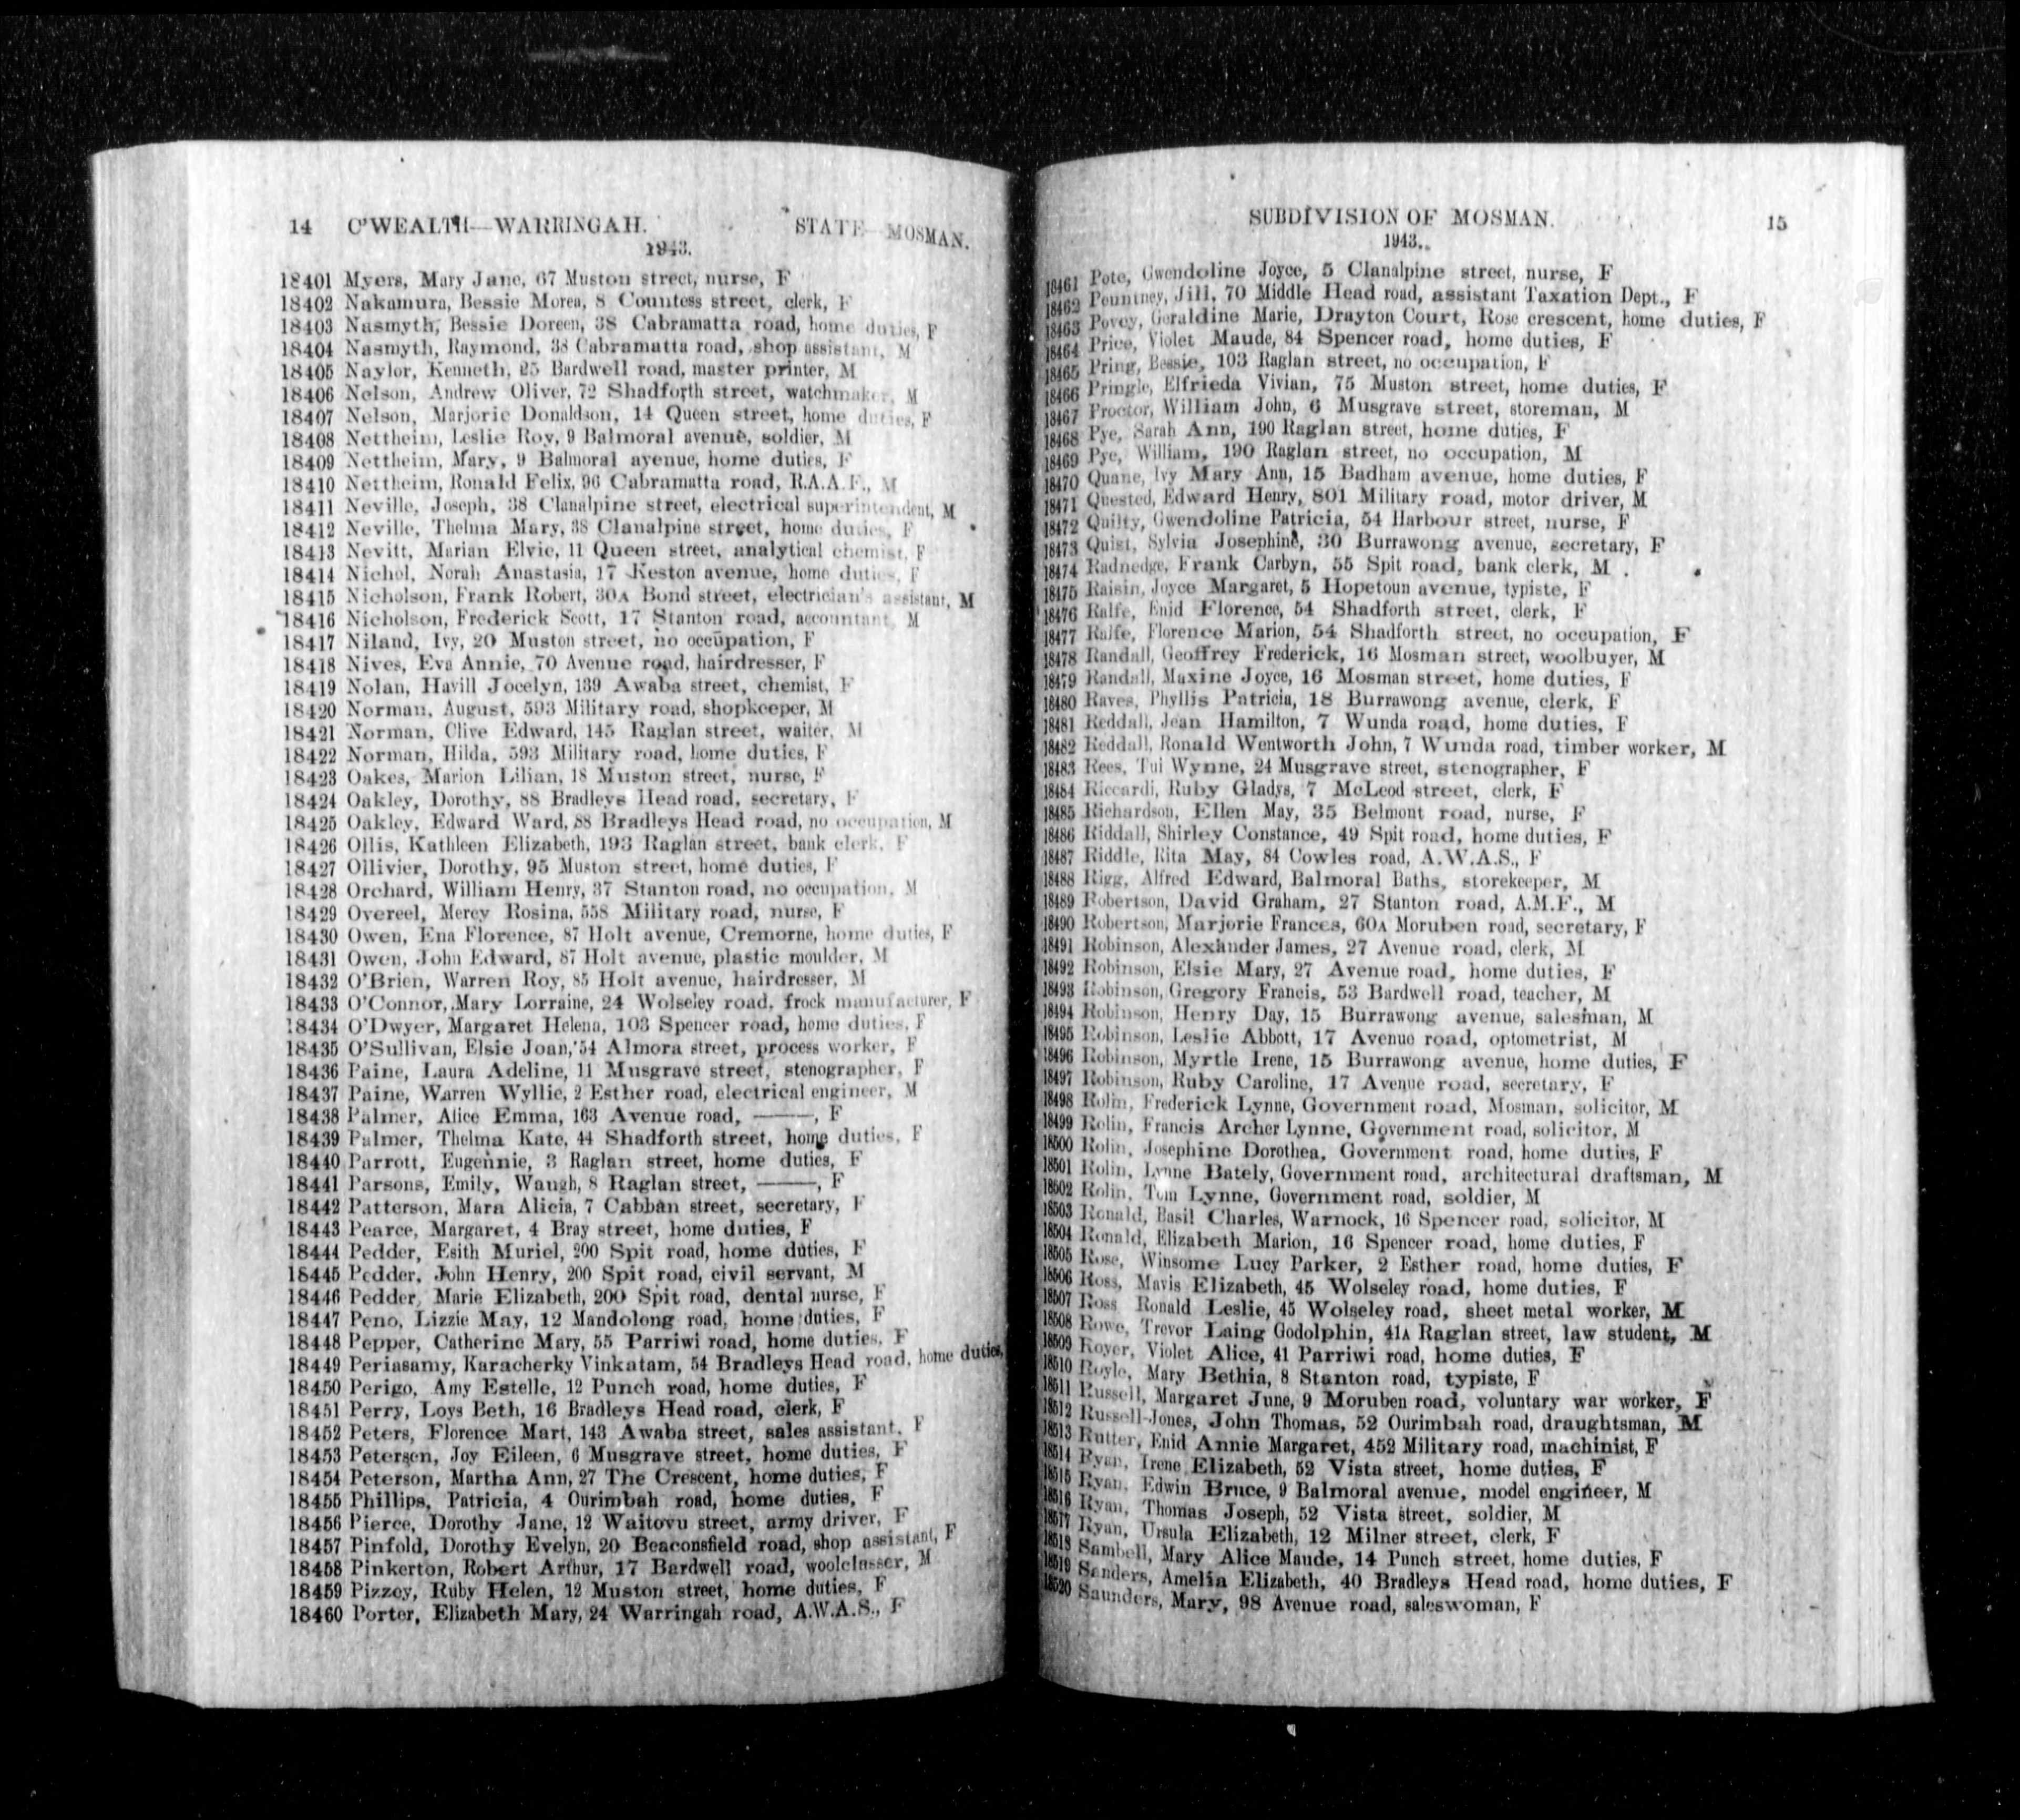 14 C'WEALTH—WARRINGAH. STATE—MOSMAN.
1943.
18401 Myers, Mary Jane, 67 Muston street, nurse, F
18402 Nakamura, Bessie Morea, 8 Countess street, clerk, F
18403 Nasmyth, Bessie Doreen, 38 Cabramatta road, home duties, F
18404 Nasmyth, Raymond, 38 Cabramatta road, shop assistant, M
18405 Naylor, Kenneth, 25 Bardwell road, master printer, M
18406 Nelson, Andrew Oliver, 72 Shadforth street, watchmaker, M
18407 Nelson, Marjorie Donaldson, 14 Queen street, home duties, F
18408 Nettheim, Leslie Roy, 9 Balmoral avenue, soldier, M
18409 Nettheim, Mary, 9 Balmoral avenue, home duties, F
18410 Nettheim, Ronald Felix, 96 Cabramatta road, R.A.A.F., M
18411 Neville, Joseph, 38 Clanalpine street, electrical superintendent, M
18412 Neville, Thelma Mary, 38 Clanalpine street, home duties, F
18413 Nevitt, Marian Elvie, 11 Queen street, analytical chemist, F
18414 Nichol, Norah Anastasia, 17 Keston avenue, home duties, F
18415 Nicholson, Frank Robert, 30A Bond street, electrician's assistant, M
18416 Nicholson, Frederick Scott, 17 Stanton road, accountant, M
18417 Niland, Ivy, 20 Muston street, no occupation, F
18418 Nives, Eva Annie, 70 Avenue road, hairdresser, F
18419 Nolan, Havill Jocelyn, 139 Awaba street, chemist, F
18420 Norman, August, 593 Military road, shopkeeper, M
18421 Norman, Clive Edward, 145 Raglan street, waiter, M
18422 Norman, Hilda, 593 Military road, home duties, F
18423 Oakes, Marion Lilian, 18 Muston street, nurse, F
18424 Oakley, Dorothy, 88 Bradleys Head road, secretary, F
18425 Oakley, Edward Ward, 88 Bradleys Head road, no occupation, M
18426 Ollis, Kathleen Elizabeth, 193 Raglan street, bank clerk, F
18427 Ollivier, Dorothy, 95 Muston street, home duties, F
18428 Orchard, William Henry, 37 Stanton road, no occupation, M
18429 Overeel, Mercy Rosina, 558 Military road, nurse, F
18430 Owen, Ena Florence, 87 Holt avenue, Cremorne, home duties, F
18431 Owen, John Edward, 87 Holt avenue, plastic moulder, M
18432 O'Brien, Warren Roy, 85 Holt avenue, hairdresser, M
18433 O'Connor, Mary Lorraine, 24 Wolseley road, frock manufacturer, F
18434 O'Dwyer, Margaret Helena, 103 Spencer road, home duties, F
18435 O'Sullivan, Elsie Joan, 54 Almora street, process worker, F
18436 Paine, Laura Adeline, 11 Musgrave street, stenographer, F
18437 Paine, Warren Wyllie, 2 Esther road, electrical engineer, M
18438 Palmer, Alice Emma, 163 Avenue road, ———, F
18439 Palmer, Thelma Kate, 44 Shadforth street, home duties, F
18440 Parrott, Eugennie, 3 Raglan street, home duties, F
18441 Parsons, Emily, Waugh, 8 Raglan street, ———, F
18442 Patterson, Mara Alicia, 7 Cabban street, secretary, F
18443 Pearce, Margaret, 4 Bray street, home duties, F
18444 Pedder, Esith Muriel, 200 Spit road, home duties, F
18445 Pedder, John Henry, 200 Spit road, civil servant, M
18446 Pedder, Marie Elizabeth, 200 Spit road, dental nurse, F
18447 Peno, Lizzie May, 12 Mandolong road, home duties, F
18448 Pepper, Catherine Mary, 55 Parriwi road, home duties, F
18449 Periasamy, Karacherky Vinkatam, 54 Bradleys Head road, home duties,
18450 Perigo, Amy Estelle, 12 Punch road, home duties, F
18451 Perry, Loys Beth, 16 Bradleys Head road, clerk, F
18452 Peters, Florence Mart, 143 Awaba street, sales assistant, F
18453 Petersen, Joy Eileen, 6 Musgrave street, home duties, F
18454 Peterson, Martha Ann, 27 The Crescent, home duties, F
18455 Phillips, Patricia, 4 Ourimbah road, home duties, F
18456 Pierce, Dorothy Jane, 12 Waitovu street, army driver, F
18457 Pinfold, Dorothy Evelyn, 20 Beaconsfield road, shop assistant, F
18458 Pinkerton, Robert Arthur, 17 Bardwell road, woolclasser, M
18459 Pizzey, Ruby Helen, 12 Muston street, home duties, F
18460 Porter, Elizabeth Mary, 24 Warringah road, A.W.A.S., F
SUBDIVISION OF MOSMAN. 15
1943.
18461 Pote, Gwendoline Joyce, 5 Clanalpine street, nurse, F
18462 Pountney, Jill, 70 Middle Head road, assistant Taxation Dept., F
18463 Povey, Geraldine Marie, Drayton Court, Rose crescent, home duties, F
18464 Price, Violet Maude, 84 Spencer road, home duties, F
18465 Pring, Bessie, 103 Raglan street, no occupation, F
18466 Pringle, Elfrieda Vivian, 75 Muston street, home duties, F
18467 Proctor, William John, 6 Musgrave street, storeman, M
18468 Pye, Sarah Ann, 190 Raglan street, home duties, F
18469 Pye, William, 190 Raglan street, no occupation, M
18470 Quane, Ivy Mary Ann, 15 Badham avenue, home duties, F
18471 Quested, Edward Henry, 801 Military road, motor driver, M
18472 Quilty, Gwendoline Patricia, 54 Harbour street, nurse, F
18473 Quist, Sylvia Josephine, 30 Burrawong avenue, secretary, F
18474 Radnedge, Frank Carbyn, 55 Spit road, bank clerk, M
18475 Raisin, Joyce Margaret, 5 Hopetoun avenue, typiste, F
18476 Ralfe, Enid Florence, 54 Shadforth street, clerk, F
18477 Ralfe, Florence Marion, 54 Shadforth street, no occupation, F
18478 Randall, Geoffrey Frederick, 16 Mosman street, woolbuyer, M
18479 Randall, Maxine Joyce, 16 Mosman street, home duties, F
18480 Raves, Phyllis Patricia, 18 Burrawong avenue, clerk, F
18481 Reddall, Jean Hamilton, 7 Wunda road, home duties, F
18482 Reddall, Ronald Wentworth John, 7 Wunda road, timber worker, M
18483 Rees, Tui Wynne, 24 Musgrave street, stenographer, F
18484 Riccardi, Ruby Gladys, 7 McLeod street, clerk, F
18485 Richardson, Ellen May, 35 Belmont road, nurse, F
18486 Riddall, Shirley Constance, 49 Spit road, home duties, F
18487 Riddle, Rita May, 84 Cowles road, A.W.A.S., F
18488 Rigg, Alfred Edward, Balmoral Baths, storekeeper, M
18489 Robertson, David Graham, 27 Stanton road, A.M.F., M
18490 Robertson, Marjorie Frances, 60A Moruben road, secretary, F
18491 Robinson, Alexander James, 27 Avenue road, clerk, M
18492 Robinson, Elsie Mary, 27 Avenue road, home duties, F
18493 Robinson, Gregory Francis, 53 Bardwell road, teacher, M
18494 Robinson, Henry Day, 15 Burrawong avenue, salesman, M
18495 Robinson, Leslie Abbott, 17 Avenue road, optometrist, M
18496 Robinson, Myrtle Irene, 15 Burrawong avenue, home duties, F
18497 Robinson, Ruby Caroline, 17 Avenue road, secretary, F
18498 Rolin, Frederick Lynne, Government road, Mosman, solicitor, M
18499 Rolin, Francis Archer Lynne, Government road, solicitor, M
18500 Rolin, Josephine Dorothea, Government road, home duties, F
18501 Rolin, Lynne Bately, Government road, architectural draftsman, M
18502 Rolin, Tom Lynne, Government road, soldier, M
18503 Ronald, Basil Charles, Warnock, 16 Spencer road, solicitor, M
18504 Ronald, Elizabeth Marion, 16 Spencer road, home duties, F
18505 Rose, Winsome Lucy Parker, 2 Esther road, home duties, F
18506 Ross, Mavis Elizabeth, 45 Wolseley road, home duties, F
18507 Ross Ronald Leslie, 45 Wolseley road, sheet metal worker, M
18508 Rowe, Trevor Laing Godolphin, 41A Raglan street, law student, M
18509 Royer, Violet Alice, 41 Parriwi road, home duties, F
18510 Royle, Mary Bethia, 8 Stanton road, typiste, F
18511 Russell, Margaret June, 9 Moruben road, voluntary war worker, F
18512 Russell-Jones, John Thomas, 52 Ourimbah road, draughtsman, M
18513 Rutter, Enid Annie Margaret, 452 Military road, machinist, F
18514 Ryan, Irene Elizabeth, 52 Vista street, home duties, F
18515 Ryan, Edwin Bruce, 9 Balmoral avenue, model engineer, M
18516 Ryan, Thomas Joseph, 52 Vista street, soldier, M
18517 Ryan, Ursula Elizabeth, 12 Milner street, clerk, F
18518 Sambell, Mary Alice Maude, 14 Punch street, home duties, F
18519 Sanders, Amelia Elizabeth, 40 Bradleys Head road, home duties, F
18520 Saunders, Mary, 98 Avenue road, saleswoman, F